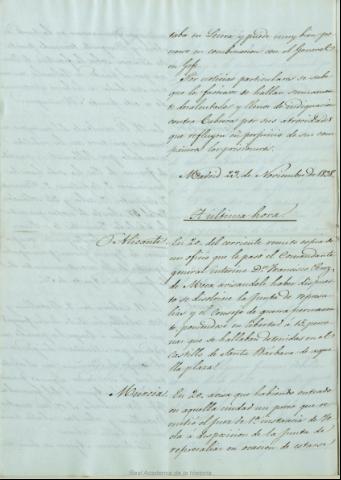 taba en Lerma y puede muy bien po-
nerse en combinacion con el General
en Gefe.
Por noticias particulares se sabe
que la facciosos se hallan sumamen-
te desalentados y llenos de indignacion
contra Cabrera por sus atrocidades
que refluyen en perjuicio de sus com-
pañeros los prisioneros.
Madrid 23 de Noviembre de 1838.
A ultima hora
Alicante. En 20 del corriente remite copia de
un oficio que le pasó el Comandante
general interino D. Francisco
de Meca avisandole haber dispues-
to se disolviese la Junta de represa-
lias y el Consejo de guerra permanen-
te poniendose en libertad a 15 perso-
nas que se hallaban detenidas en el
Castillo de Santa Barbara de aque-
lla plaza.
Murcia. En 20, avisa que habiendo entrado
en aquella ciudad un preso que re-
mitió el Juez de 1ª instancia de
a disposicion de la Junta de
represalias en ocasion de estarse
Real Academia de la Historia